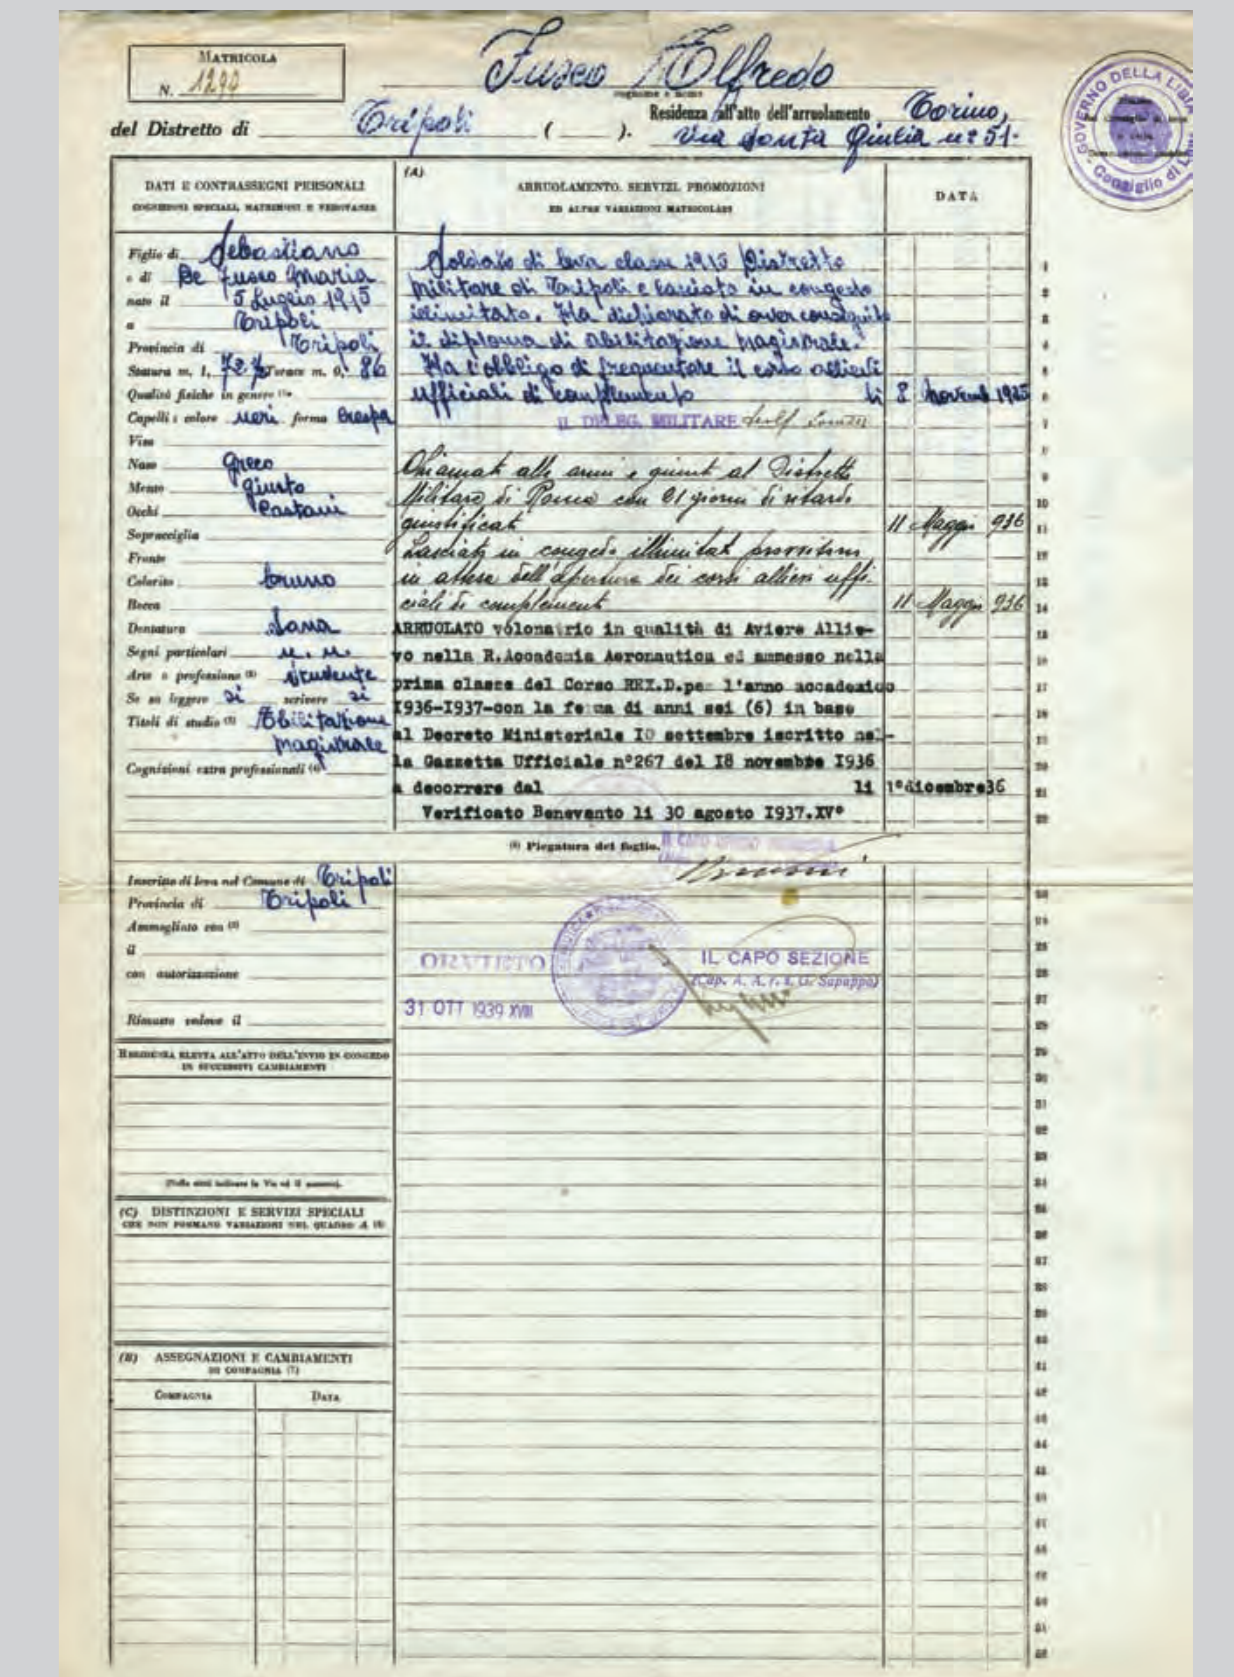 MATRICOLA
N. 1299
Fusco Alfredo
cognome e nome
del Distretto di Tripoli ( ).
Residenza all'atto dell'arruolamento Torino,
Via Santa Giulia n° 51-
GOVERNO DELLA LIBIA
Consiglio di Leva
DATI E CONTRASSEGNI PERSONALI
COGNIZIONI SPECIALI, MATRIMONI E VEDOVANZE
(A)
ARRUOLAMENTO, SERVIZI, PROMOZIONI
ED ALTRE VARIAZIONI MATRICOLARI
DATA
Figlio di Sebastiano
e di De Fusco Maria
nato il 5 Luglio 1915
a Tripoli
Provincia di Tripoli
Statura m. 1, 72 Torace m. 0, 86
Qualità fisiche in genere (1)
Capelli: colore neri forma crespa
Viso
Naso Greco
Mento giusto
Occhi Castani
Sopracciglia
Fronte
Colorito bruno
Bocca
Dentatura sana
Segni particolari n. n.
Arte o professione (2) studente
Se sa leggere si scrivere si
Titoli di studio (3) Abilitazione
magistrale
Cognizioni extra professionali (4)
Soldato di leva classe 1915 Distretto
militare di Tripoli e lasciato in congedo
illimitato. Ha dichiarato di aver conseguito
il diploma di abilitazione magistrale.
Ha l'obbligo di frequentare il corso allievi
ufficiali di complemento li 8 novemb 1935
IL DELEG. MILITARE
Chiamato alle armi e giunto al Distretto
Militare di Roma con 21 giorni di ritardo
giustificato 11 Maggio 936
Lasciato in congedo illimitato provvisorio
in attesa dell'apertura dei corsi allievi uffi-
ciali di complemento 11 Maggio 936
ARRUOLATO volonatrio in qualità di Aviere Allie-
vo nella R.Accademia Aeronautica ed ammesso nella
prima classe del Corso REX.D.per l'anno accademico
1936-1937-con la ferma di anni sei (6) in base
al Decreto Ministeriale 10 settembre iscritto nel-
la Gazzetta Ufficiale n°267 del 18 novembre 1936
a decorrere dal li 1°dicembre36
Verificato Benevanto li 30 agosto 1937.XV°
(8) Piegatura del foglio.
Inscritto di leva nel Comune di Tripoli
Provincia di Tripoli
Ammogliato con (5)
il
con autorizzazione
Rimasto vedovo il
ORVIETO
31 OTT 1939 XVIII
IL CAPO SEZIONE
(Cap. A. A. r. s. G. Sapuppo)
RESIDENZA ELETTA ALL'ATTO DELL'INVIO IN CONGEDO
IN SUCCESSIVI CAMBIAMENTI
(Nelle città indicare la Via ed il numero).
(C) DISTINZIONI E SERVIZI SPECIALI
CHE NON FORMANO VARIAZIONI NEL QUADRO A (6)
(B) ASSEGNAZIONI E CAMBIAMENTI
DI COMPAGNIA (7)
COMPAGNIA DATA